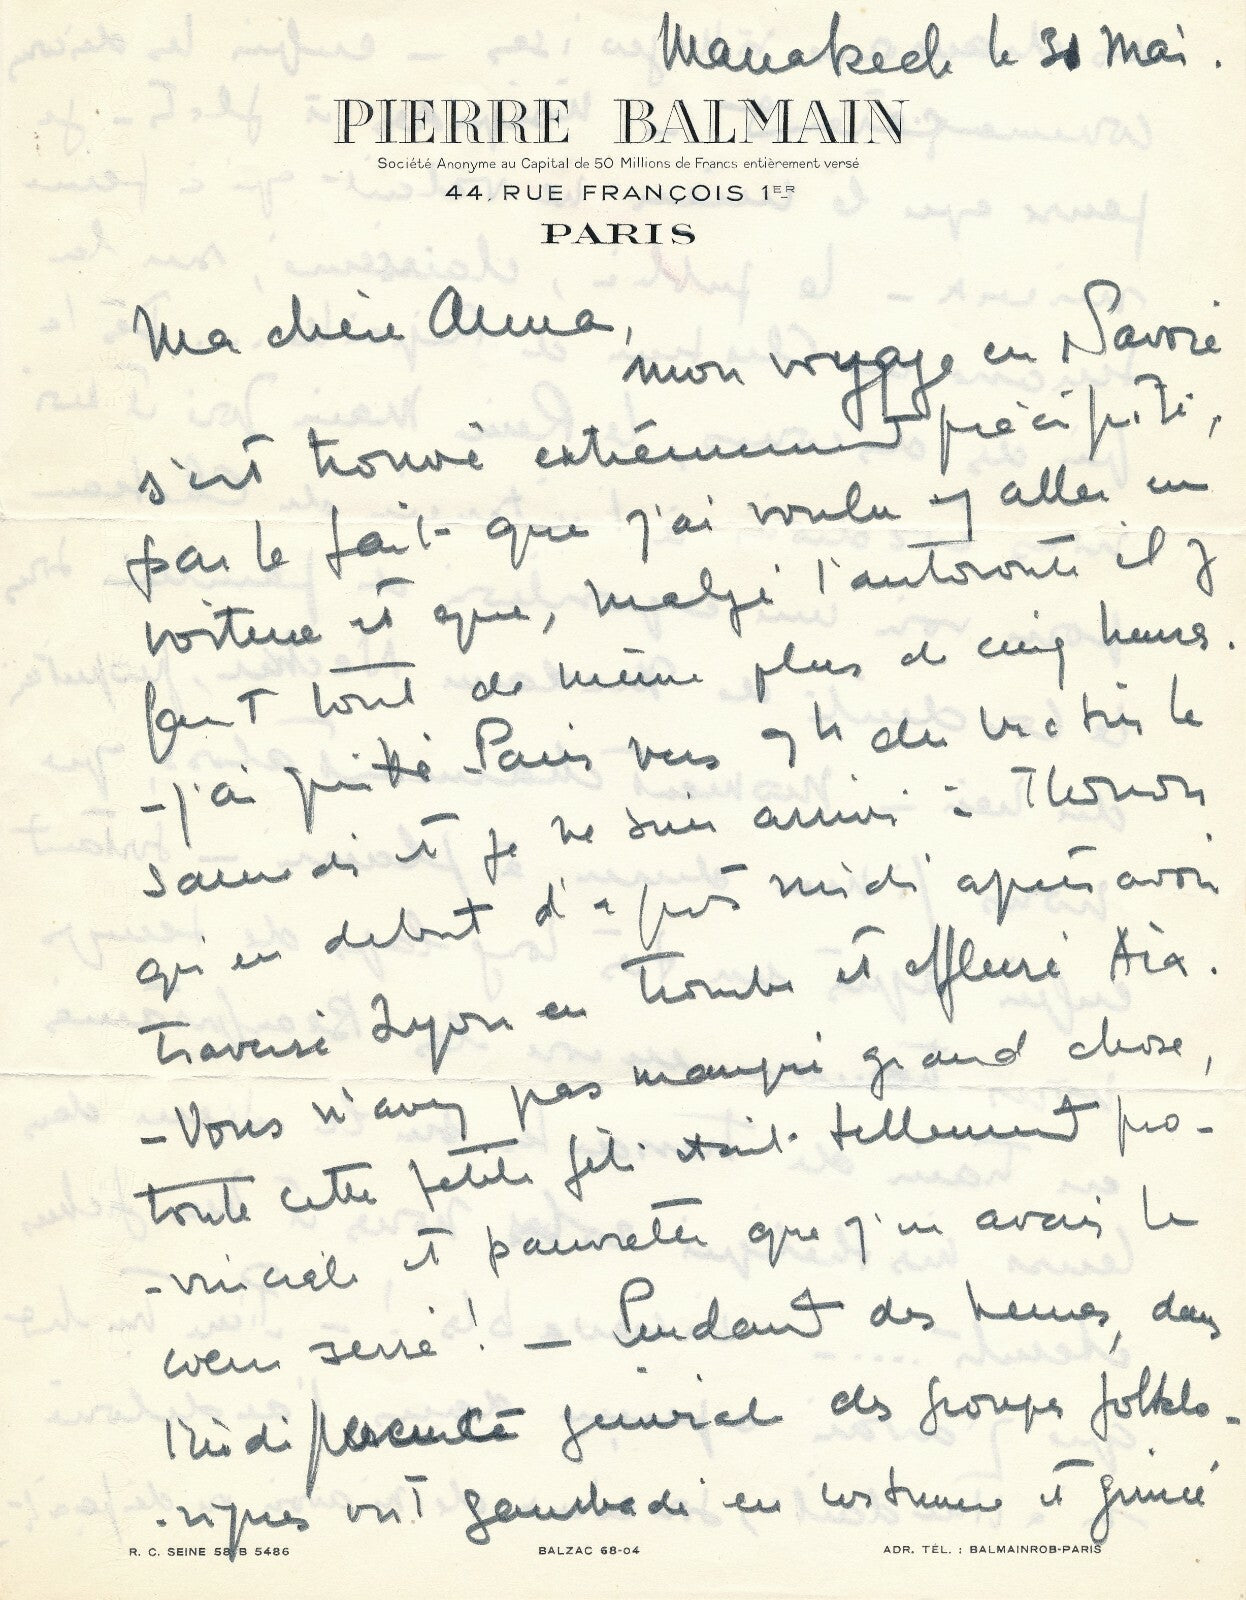 Marrakech le 31 Mai.
PIERRE BALMAIN
Société Anonyme au Capital de 50 Millions de Francs entièrement versé
44, RUE FRANÇOIS 1ER
PARIS
Ma chère Anna,
mon voyage en Savoie
s'est trouvé extrêmement précipité,
par le fait que j'ai voulu y aller en
voiture et que, malgré l'autoroute il y
faut tout de même plus de cinq heures.
- j'ai quitté Paris vers 7h du matin le
samedi et je ne suis arrivé à Thonon
qu'en début d'après midi après avoir
traversé Lyon en trombe et effleuré Aix.
- Vous n'avez pas manqué grand chose,
toute cette petite fête était tellement pro-
-vinciale et pauvrette que j'en avais le
coeur serré ! - Pendant des heures, dans
l'indifférence générale des groupes folklo-
-riques ont gambadé en costume et grincé
R. C. SEINE 58 B 5486
BALZAC 68-04
ADR. TÉL. : BALMAINROB-PARIS